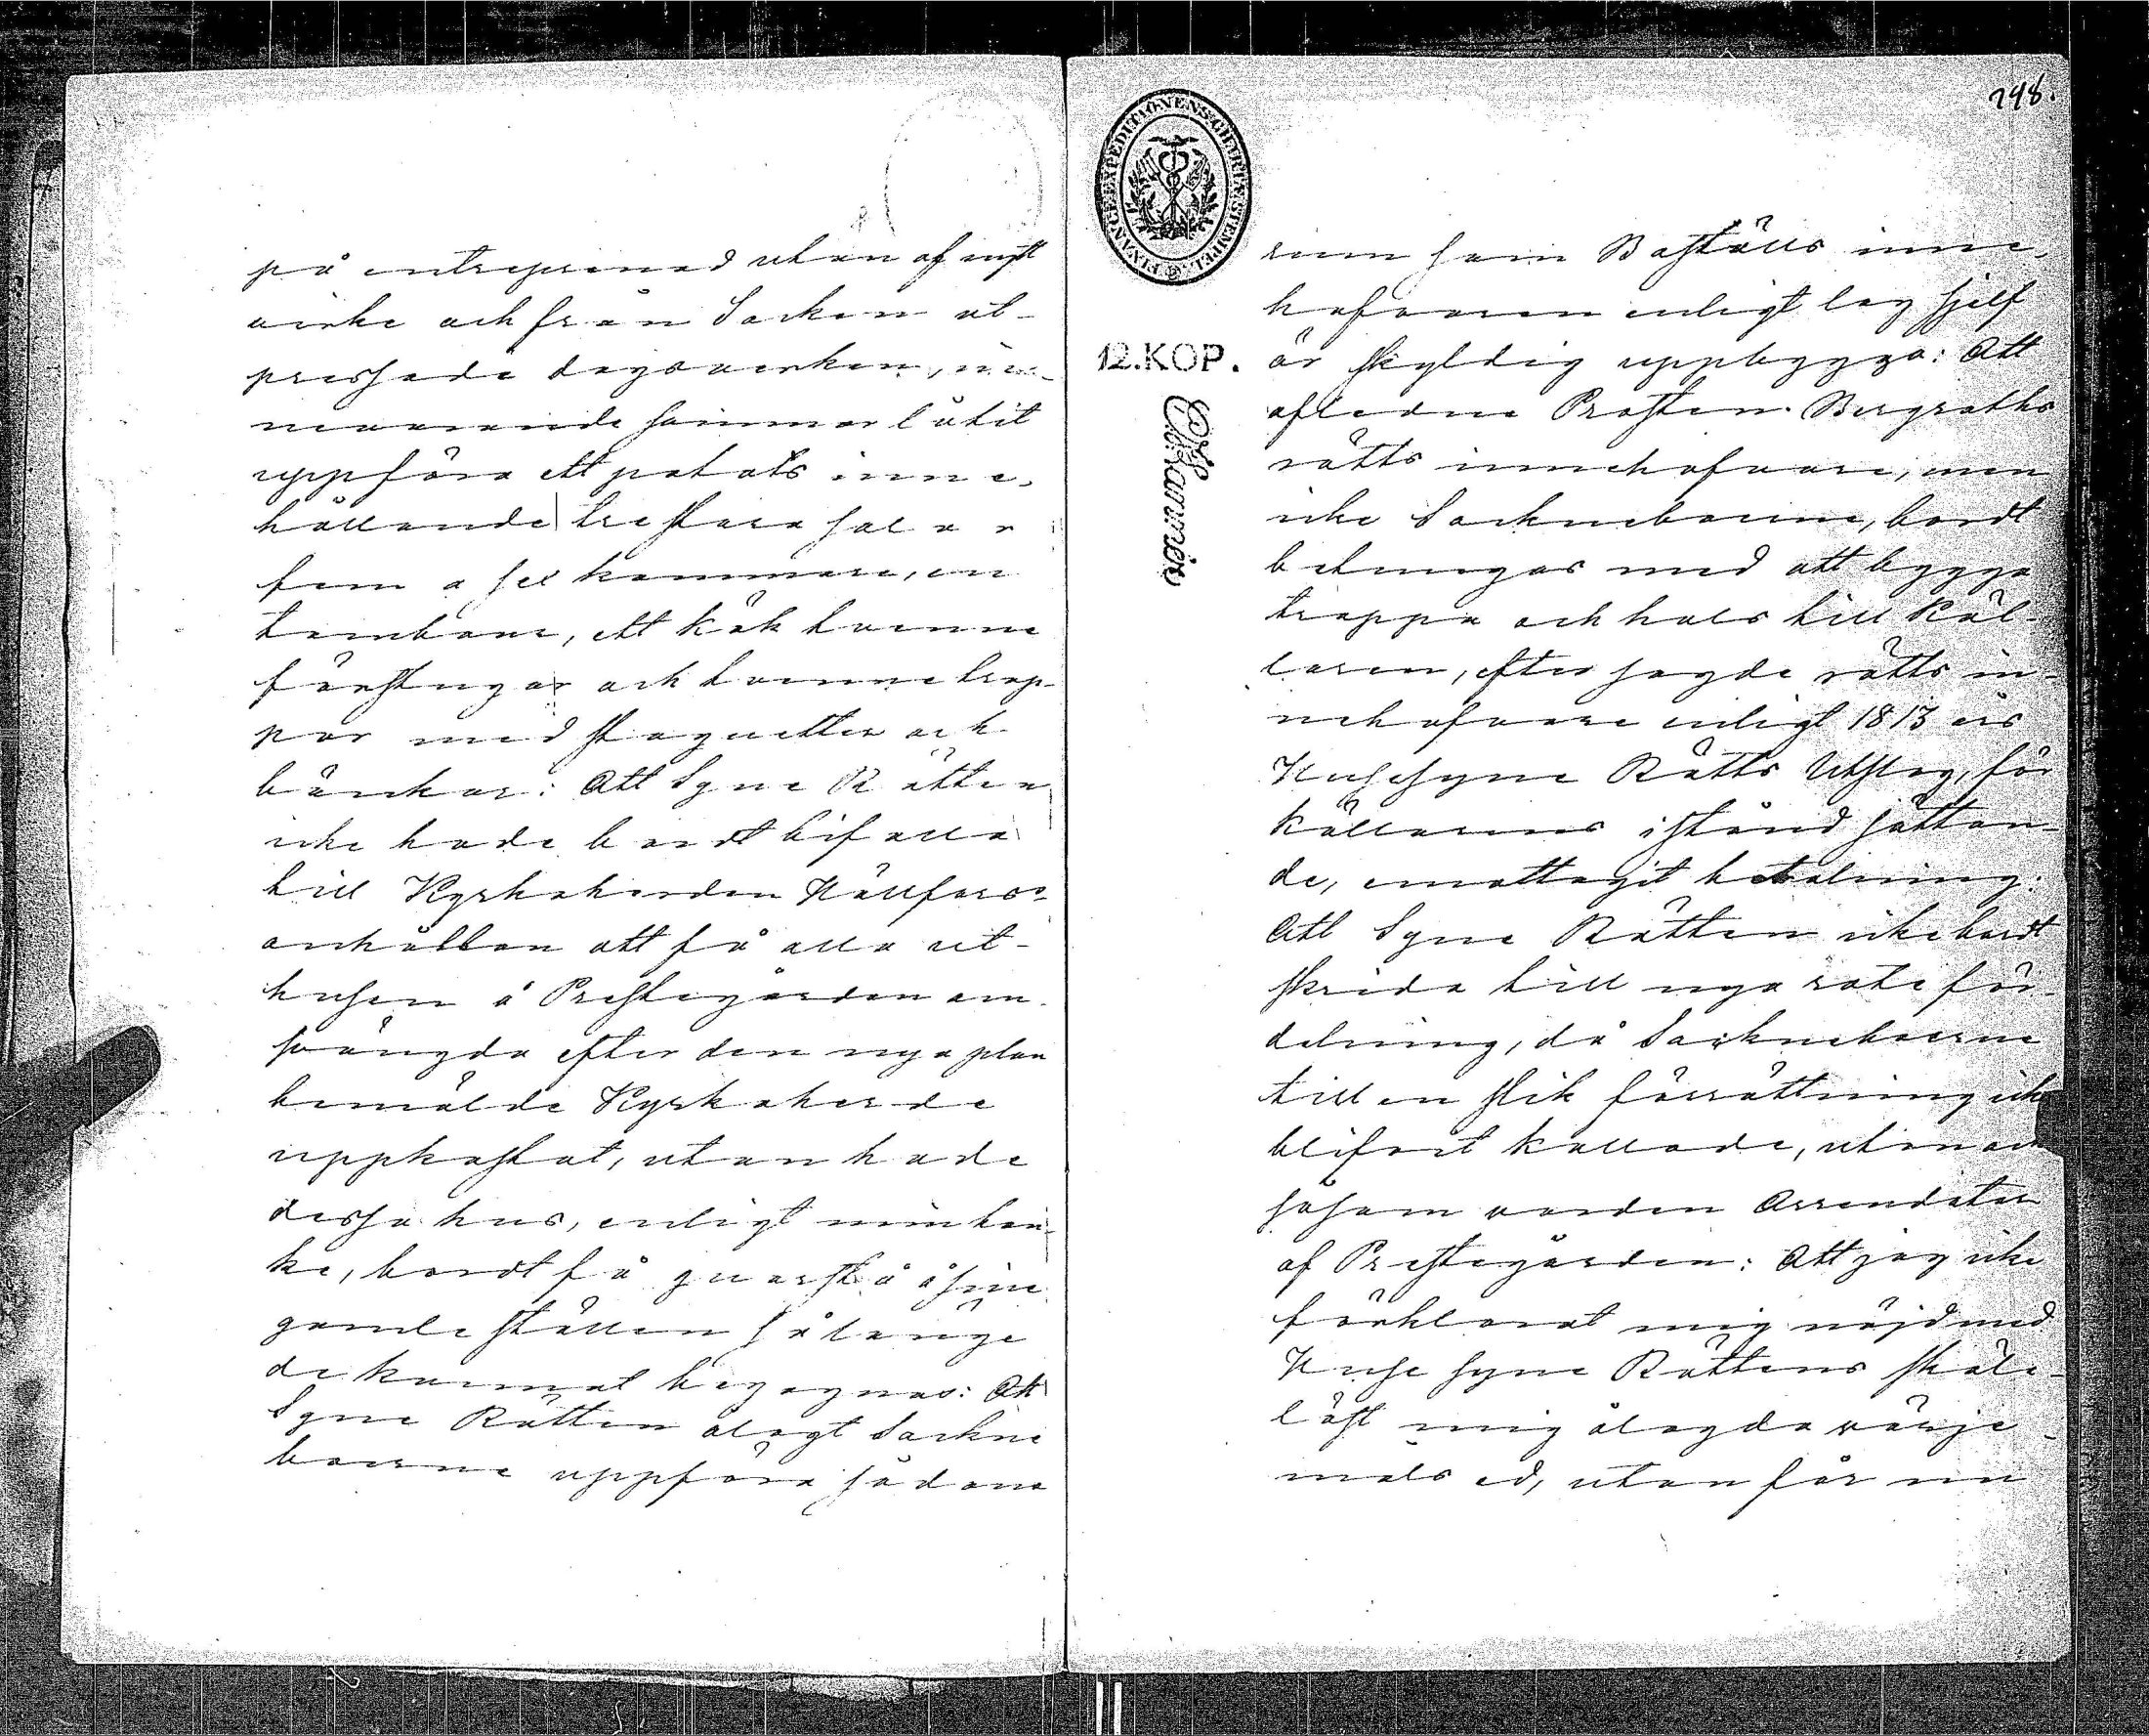 på entreprenad utan af nytt
virke och från Socken ut-
pressade dagsverken, in-
nevarande sommar låtit
uppföra ett palats inne-
hållande tre stora salar
fem a sex kammare, en
tambour, ett kök tvenne
förstugor och tvenne trap-
por med staquetter och
bänkar: Att Syne Rätten
icke hade bordt bifalla
till Kyrkoherden Hällfors
anhållan att få alla ut-
husen å Prestegården om-
svängda efter den nya plan
bemälde Kyrkoherde
uppkastat, utan hade
dessa hus, enligt min tan-
ke, bordt få quarstå å sine
gamle ställen så länge
de kunnat begagnas: Att
Syne Rätten ålagt Sockne
boerne uppföra sådana
248.
FINANCE EXPEDITIONENS CHARTÆ STEMPEL
12. KOP.
rum som Boställs inne-
hafvaren enligt lag sjelf
är skyldig uppbygga: Att
aflidne Prosten Bergraths
rätts innehafvare, men
icke Sockneboerne, bordt
betungas med att bygga
trappa och hals till Käl-
laren, efter sagde rätts in-
nehafvare enligt 1813 års
Husesyne Rätts Utslag, för
källarens istånd sättan-
de, emottagit betalning:
Att Syne Rätten icke bordt
skrida till nya rote för-
delning, då Sockneboerne
till en slik förrättning icke
blifvit kallade, utan
såsom vorden Arrendator
af Prestegården: Att jag icke
förklarat mig nöjd med
Huse syne Rättens skäli-
löst mig ålagda värje-
måls ed, utan för min